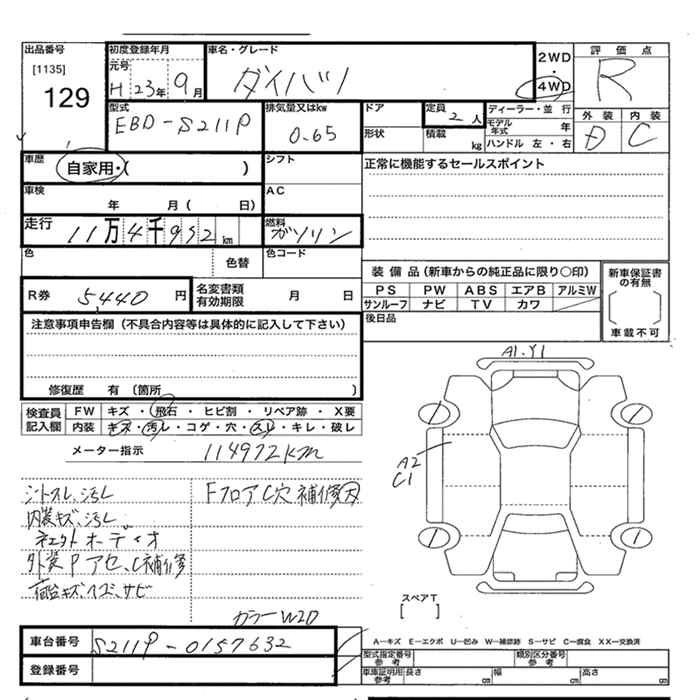 出品番号 初度登録年月 車名・グレード 2WD 評価点
[1135] 元号 ダイハツ ・ R
129 H 23年 9月 4WD
型式 排気量又はkw ドア 定員 2人 ディーラー・並行 外装 内装
EBD-S211P 0.65 形状 積載 kg モデル年式 年 D C
ハンドル 左・右
車歴 自家用・( ) シフト 正常に機能するセールスポイント
車検 年 月( 日) AC
走行 11万4千952km 燃料 ガソリン
色 色替 色コード
装備品(新車からの純正品に限り○印) 新車保証書の有無
R券 5,440円 名変書類有効期限 月 日 PS PW ABS エアB アルミW
サンルーフ ナビ TV カワ
注意事項申告欄(不具合内容等は具体的に記入して下さい) 後日品 車載不可
修復歴 有(箇所 )
検査員記入欄 FW キズ・飛石・ヒビ割・リペア跡・X要
内装 キズ・汚レ・コゲ・穴・スレ・キレ・破レ
メーター指示 114972km
A1.Y1
A2
C1
シートスレ、汚レ Fフロア C穴 補修有
内装キズ、汚レ
オーディオ
外装 P アセ、C補修
荷台キズ、ヘコミ、サビ
スペアT
[ ]
カラー W20
車台番号 S211P-0157632
A-キズ E-エクボ U-凹み W-補修跡 S-サビ C-腐食 XX-交換済
登録番号 型式指定番号 参考 類別区分番号 参考
車庫証明用 参考 長さ cm 幅 cm 高さ cm